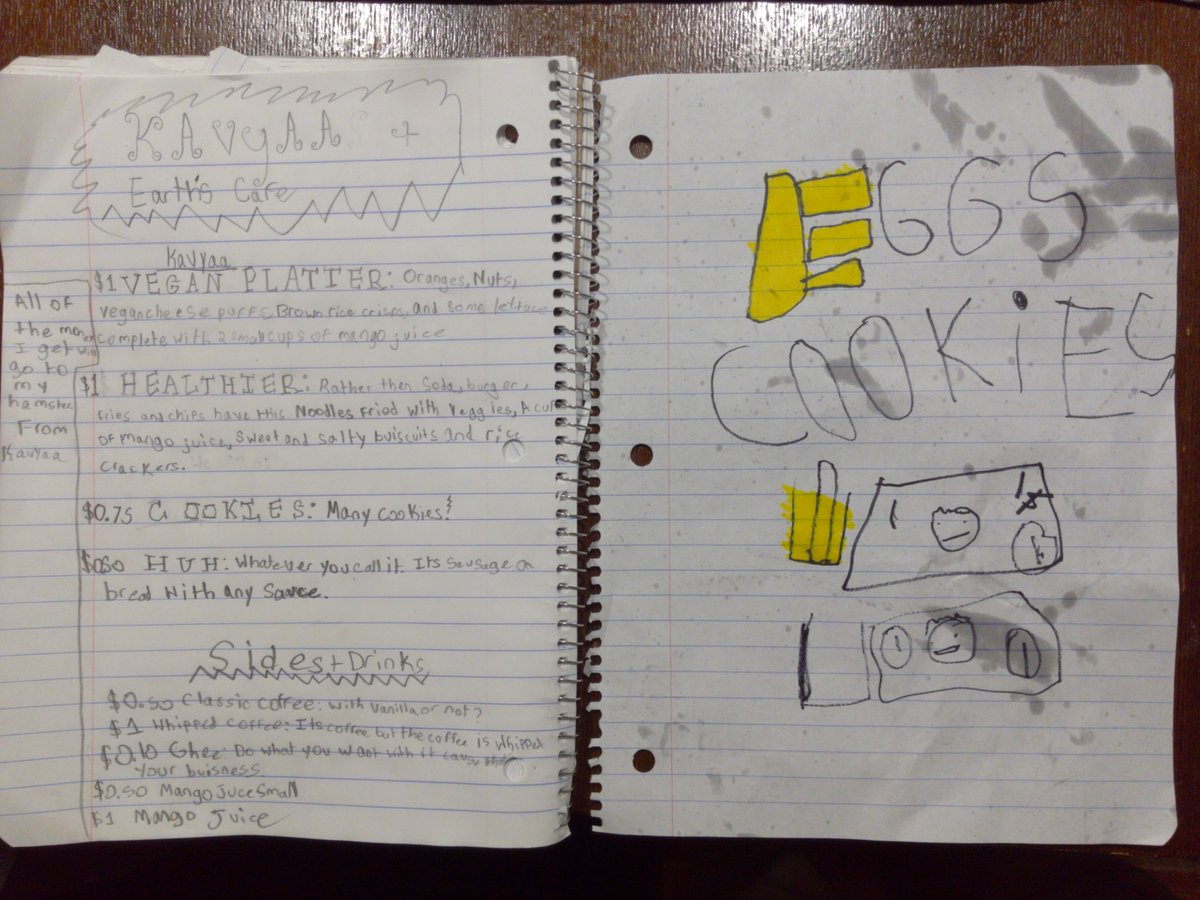 KAVYAA +
Earth's Cafe
Kavyaa
$1 VEGAN PLATTER: Oranges, Nuts,
vegan cheese puffs, Brown rice crisps, and some lettuce
complete with 2 small cups of mango juice
$1 HEALTHIER: Rather then Soda, burger,
fries and chips have this. Noodles Fried with Veggies, A cup
of mango juice, Sweet and salty buiscuits and rice
crackers.
$0.75 COOKIES: Many cookies!
HUH: Whatever you call it. Its Sausage on
bread with any Sauce.
Sides + Drinks
$0.50 Classic coffee: with Vanilla or not?
$1 Whipped coffee: Its coffee but the coffee is whipped
$0.10 Ghee: Do what you want with it
your buisness
$0.50 Mango Juce Small
$1 Mango Juice
All of
the money
I get will
go to
my
hamster
From
Kavyaa
EGGS
COOKiES
1
1
1
1
1